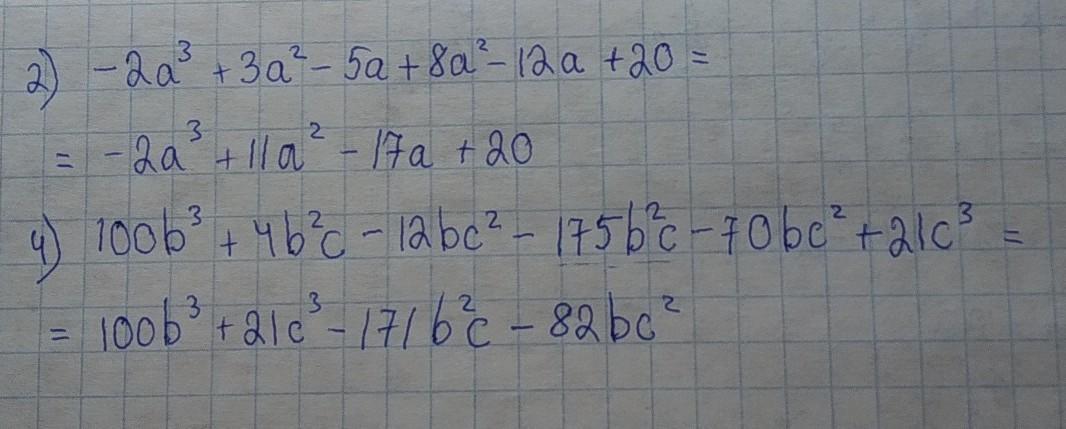 2) -2a³ + 3a² - 5a + 8a² - 12a + 20 =
= -2a³ + 11a² - 17a + 20
4) 100b³ + 4b²c - 12bc² - 175b²c - 70bc² + 21c³ =
= 100b³ + 21c³ - 171b²c - 82bc²